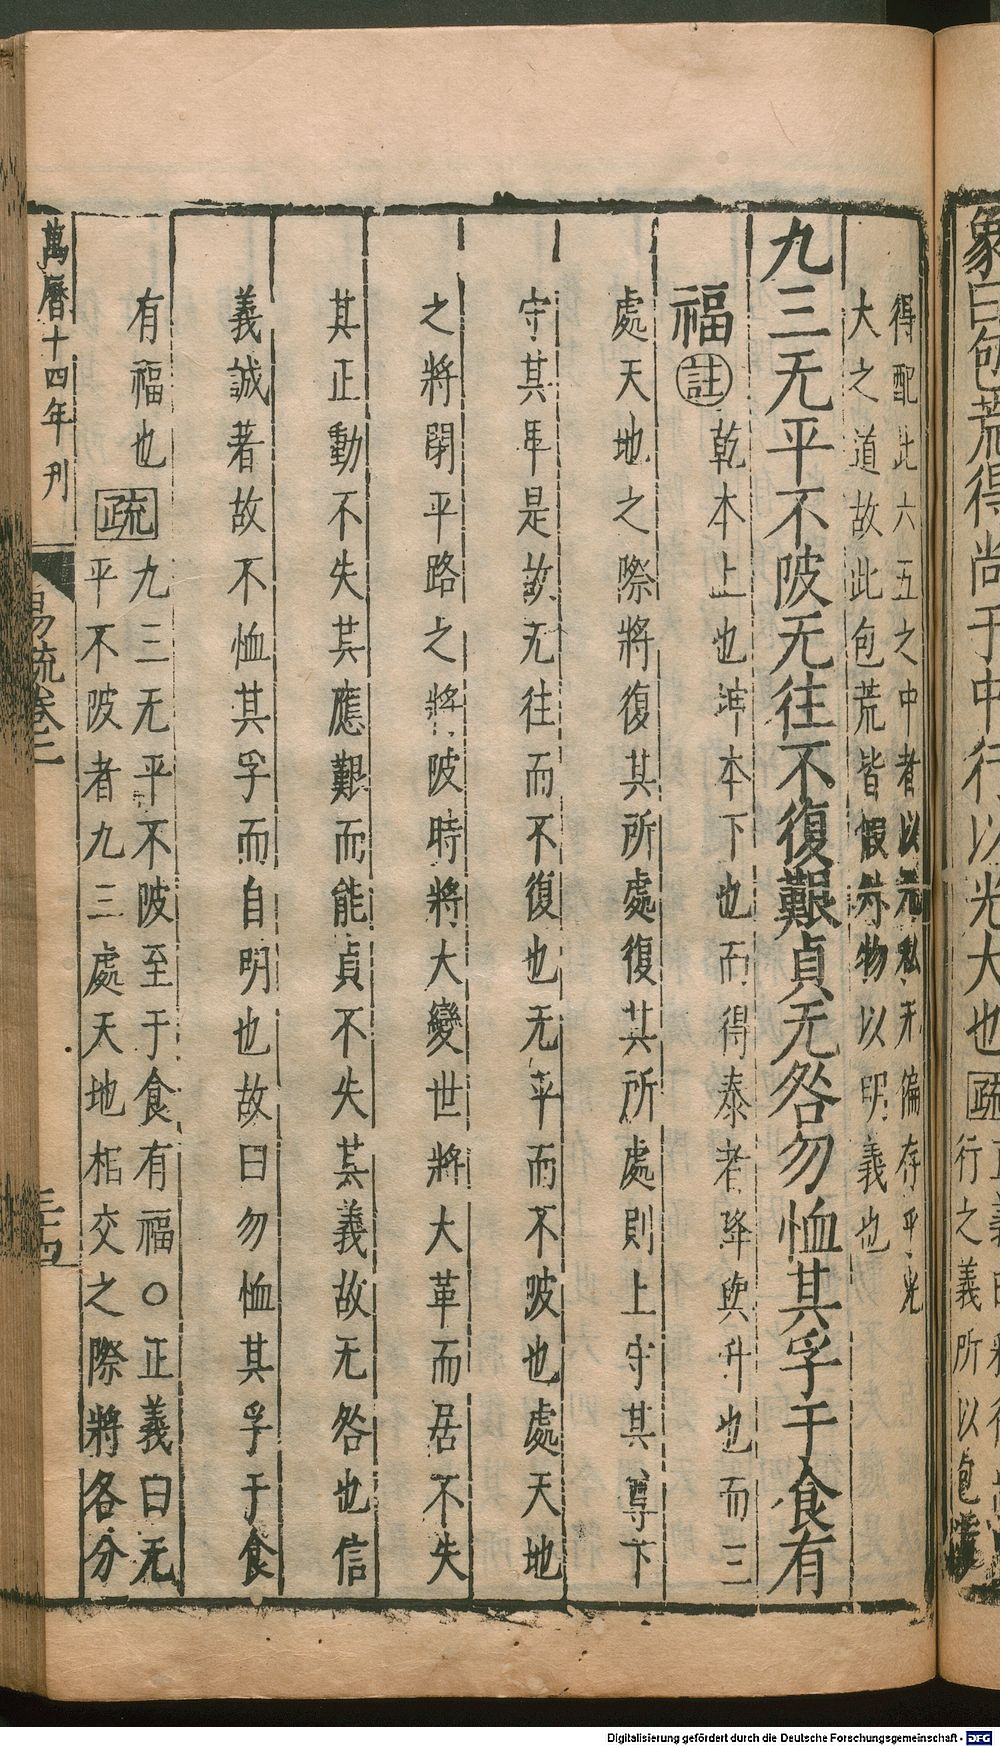 象曰包荒得尚于中行以光大也疏
行之義所以包荒
得配此六五之中者以无私无偏存乎光
大之道故此包荒皆假外物以明義也
九三无平不陂无往不復艱貞无咎勿恤其孚于食有
福註乾本上也坤本下也而得泰者降與升也而三
處天地之際將復其所處復其所處則上守其尊下
守其卑是故无往而不復也无平而不陂也處天地
之將閉平路之將陂時將大變世將大革而居不失
其正動不失其應艱而能貞不失其義故无咎也信
義誠著故不恤其孚而自明也故曰勿恤其孚于食
有福也疏九三无平不陂至于食有福○正義曰无
平不陂者九三處天地相交之際將各分
萬曆十四年刊
易疏卷二
三十四
Digitalisierung gefördert durch die Deutsche Forschungsgemeinschaft - DFG